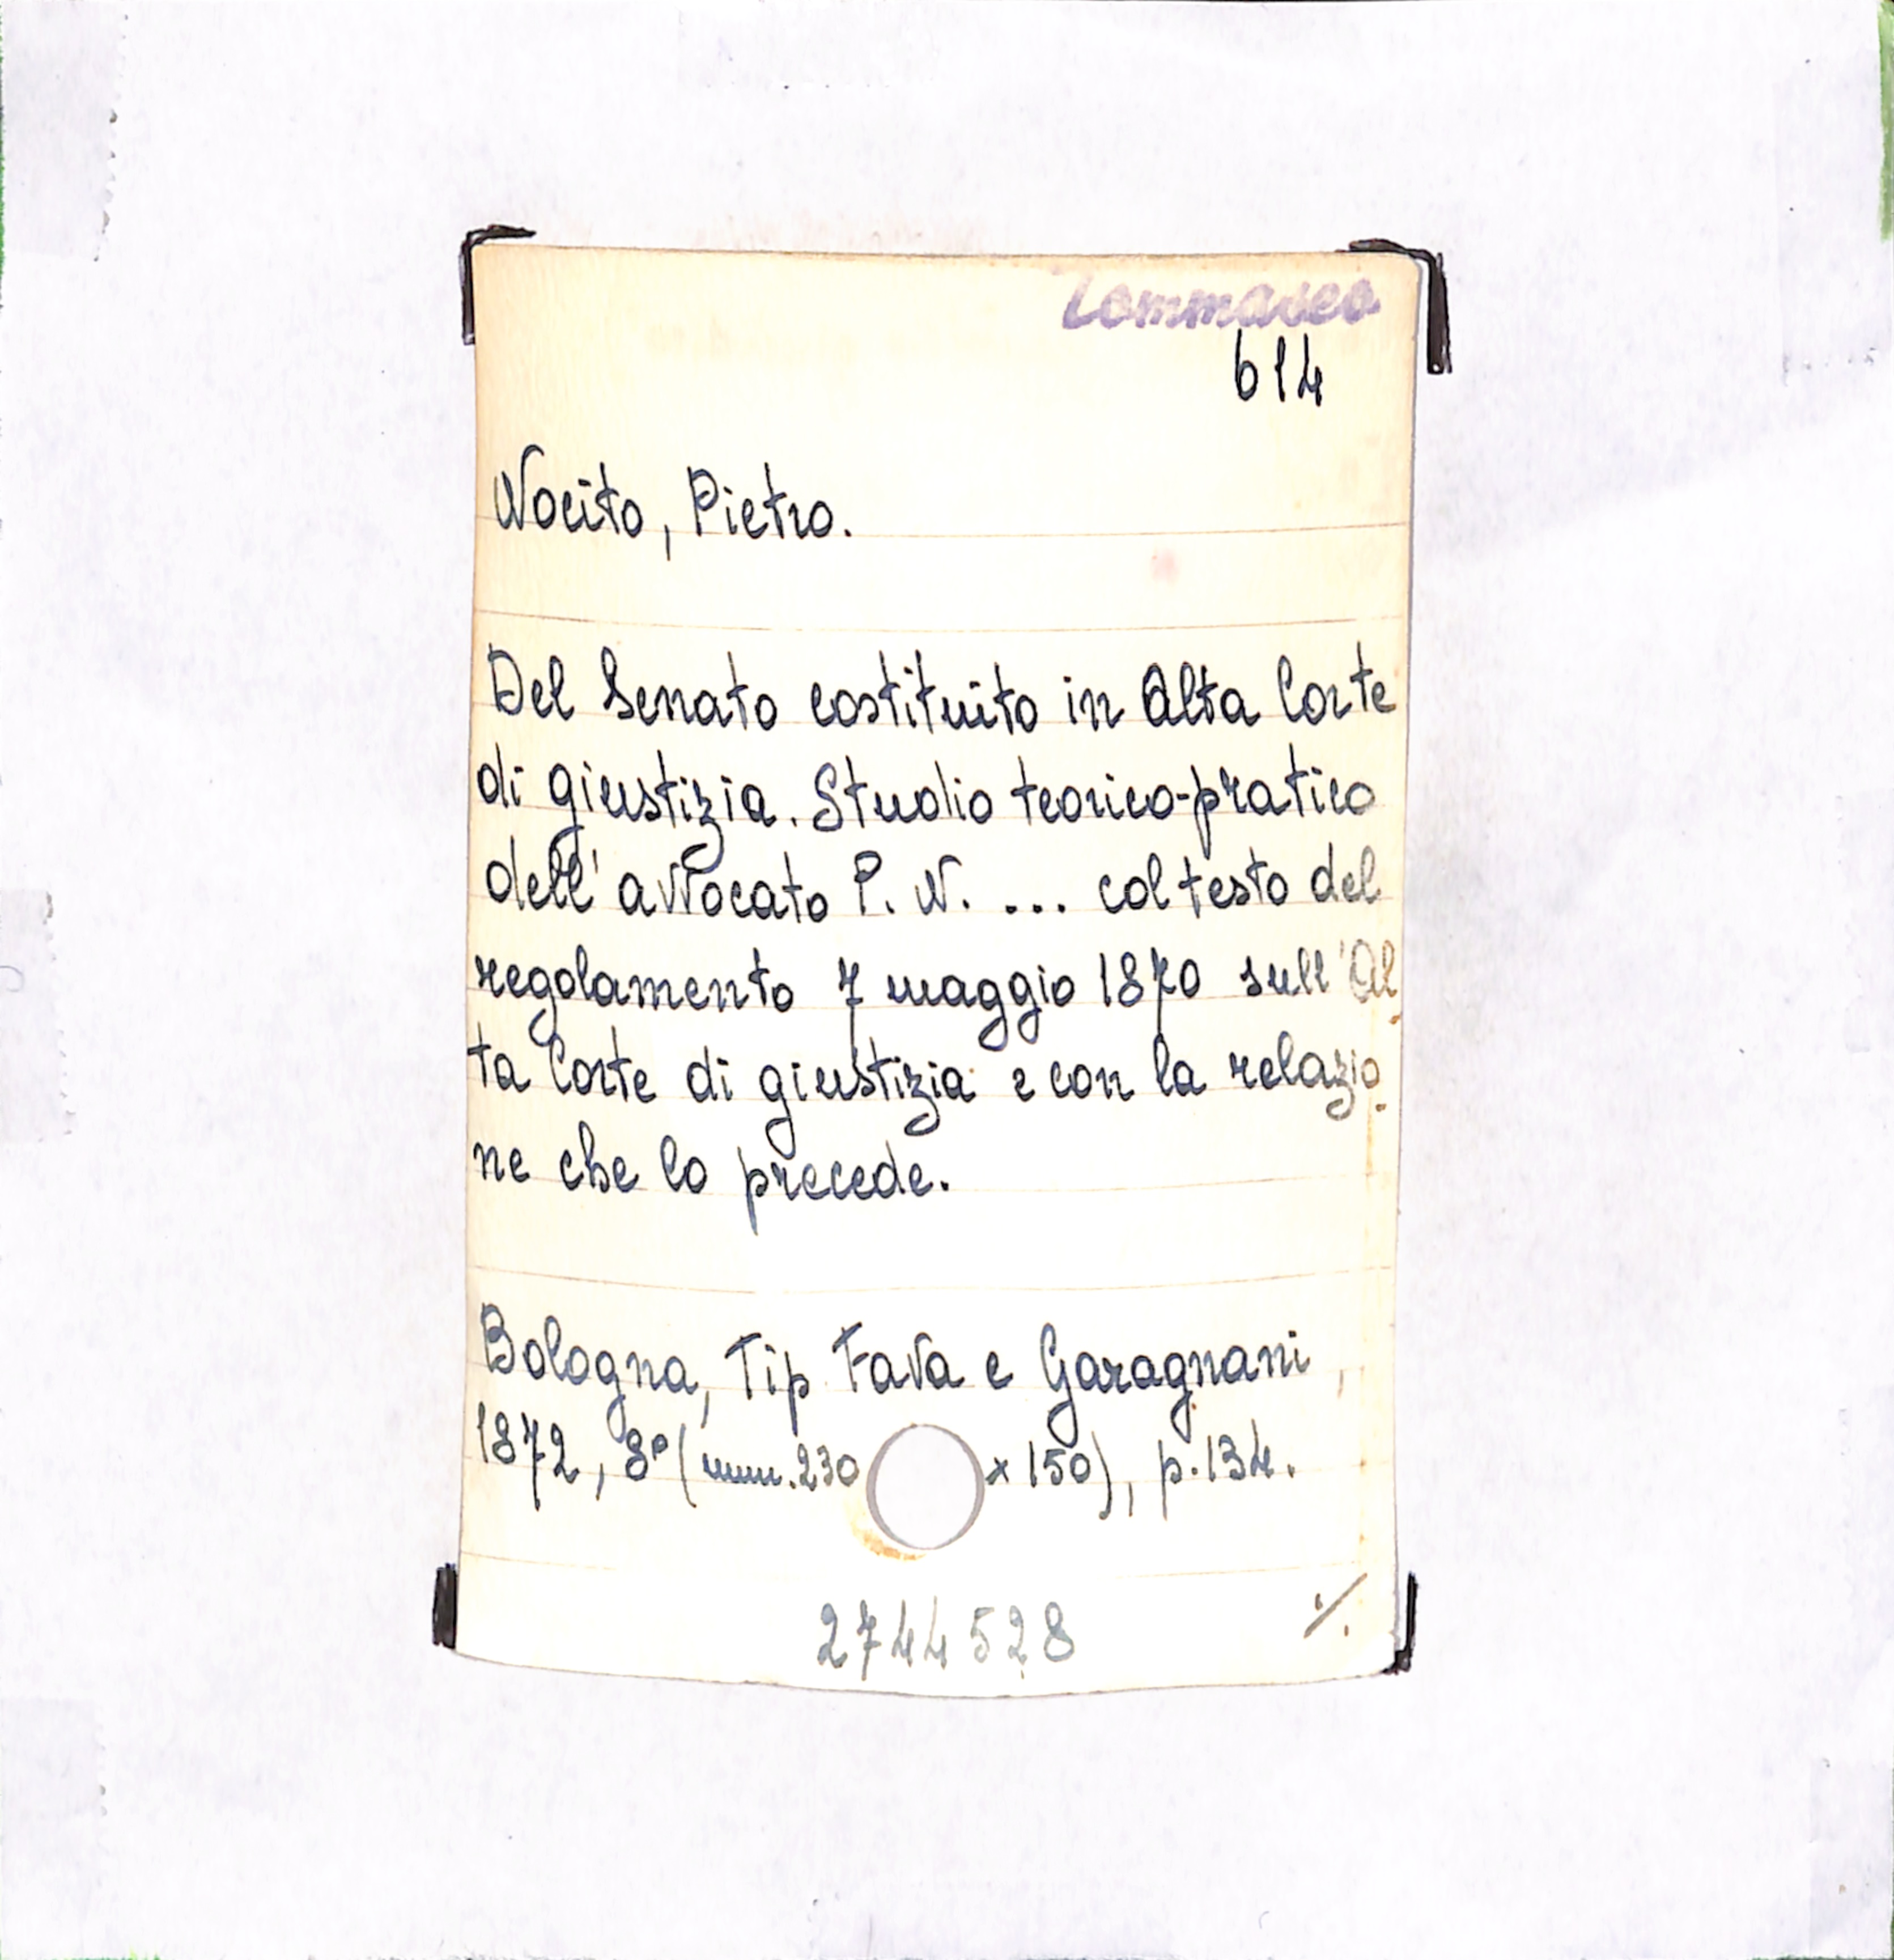 Tommaseo
614
Nocito, Pietro.
Del Senato costituito in Alta Corte
di giustizia. Studio teorico-pratico
dell'avvocato P. N. ... col testo del
regolamento 7 maggio 1870 sull'Al
ta Corte di giustizia e con la relazio
ne che lo precede.
Bologna, Tip. Fava e Garagnani,
1872, 8° (mm. 230 x 150), p. 134.
2744528
./.